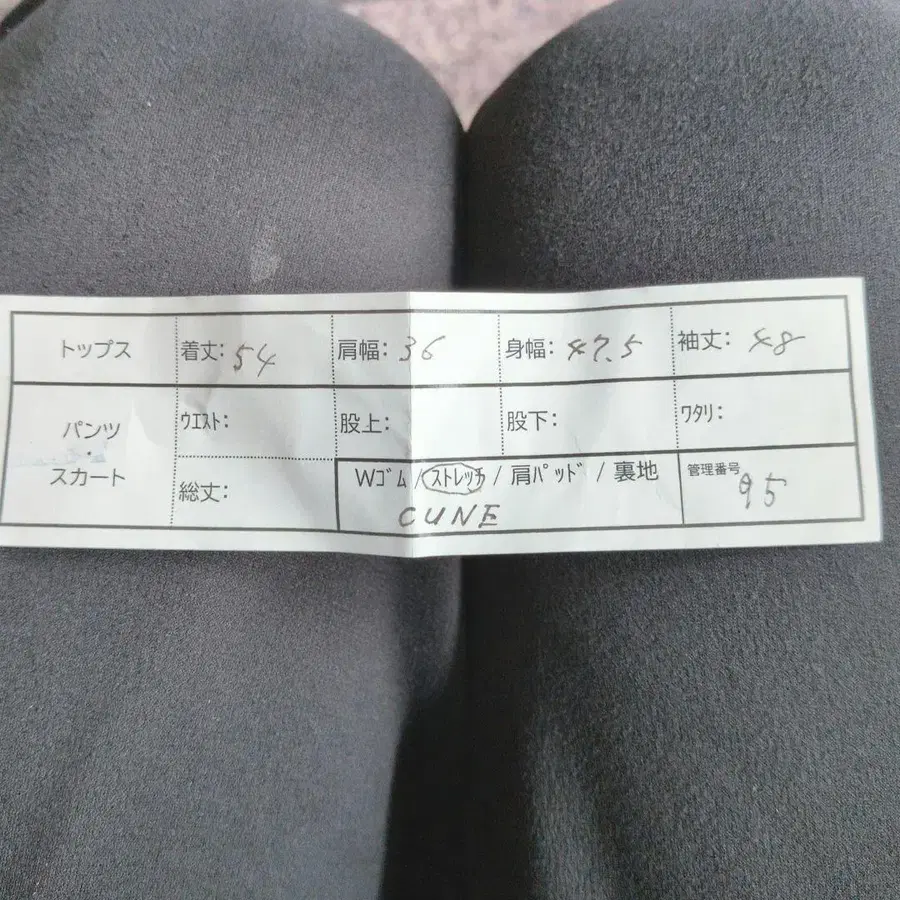 トップス 着丈: 54 肩幅: 36 身幅: 47.5 袖丈: 48
パンツ・スカート ウエスト: 股上: 股下: ワタリ:
総丈: Wゴム/ストレッチ/肩パッド/裏地 管理番号 95
CUNE